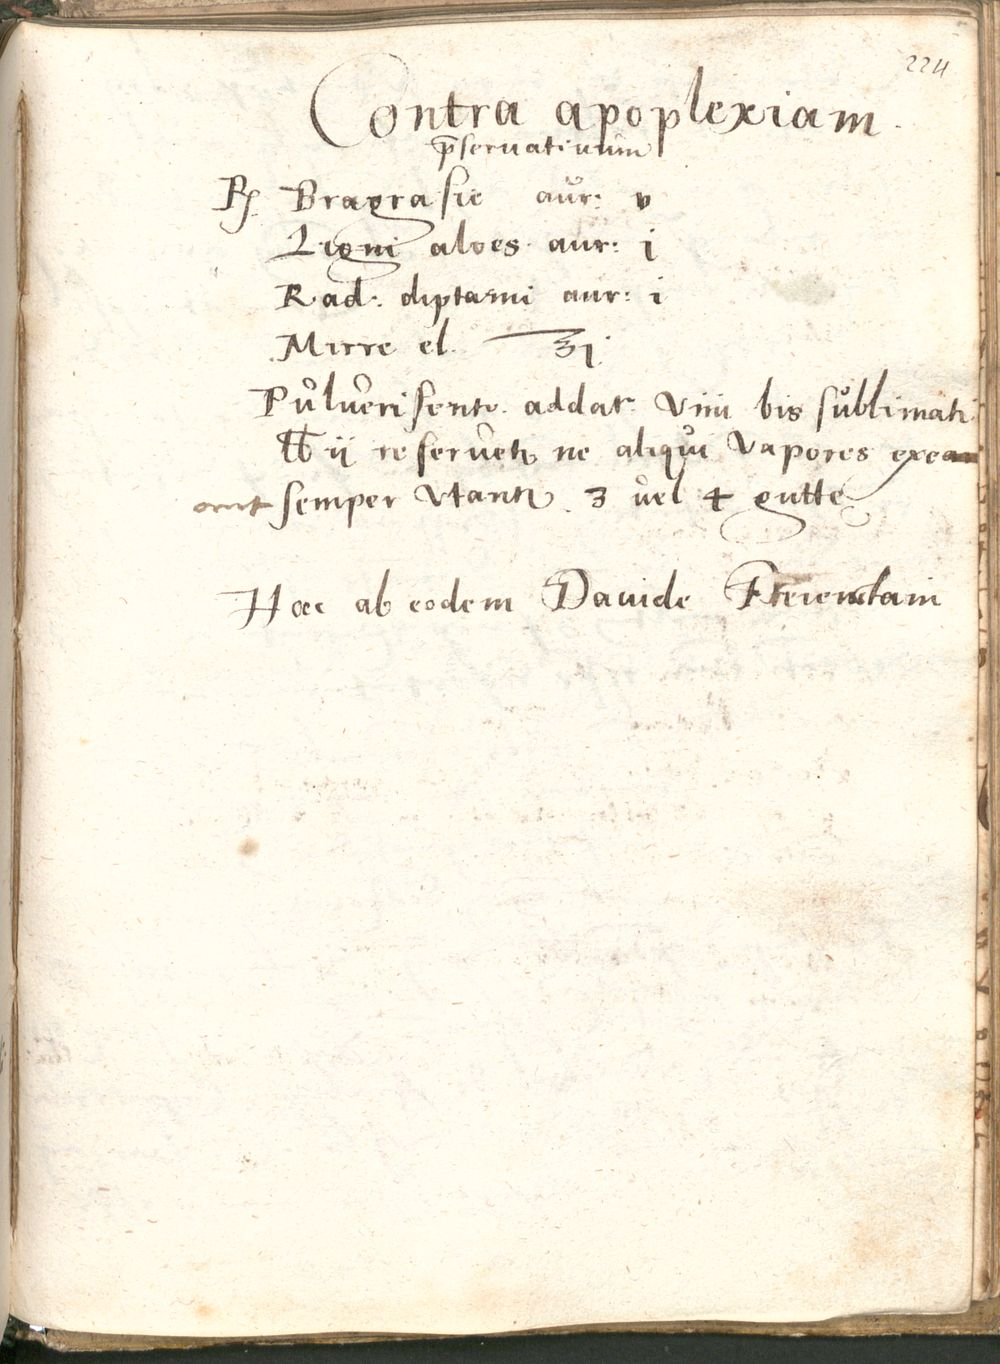 224
Contra apoplexiam.
p̄servativum
℞ Bragrasie aur: v
Ligni aloes aur: j
Rad: diptami aur: i
Mirre el. ʒj.
Pulverisent. addat. Vini bis sublimati
℔ ij reservet ne aliqui Vapores exea
ant semper Utant 3 vel 4 gutte
Hæc ab eodem Davide